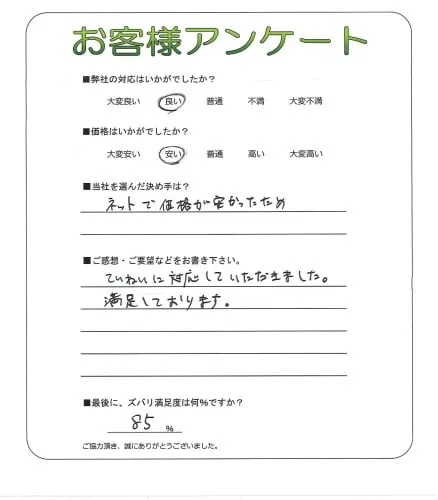 お客様アンケート
■弊社の対応はいかがでしたか？
大変良い 良い 普通 不満 大変不満
■価格はいかがでしたか？
大変安い 安い 普通 高い 大変高い
■当社を選んだ決め手は？
ネットで価格が安かったため
■ご感想・ご要望などをお書き下さい。
ていねいに対応していただきました。
満足しております。
■最後に、ズバリ満足度は何%ですか？
85 %
ご協力頂き、誠にありがとうございました。